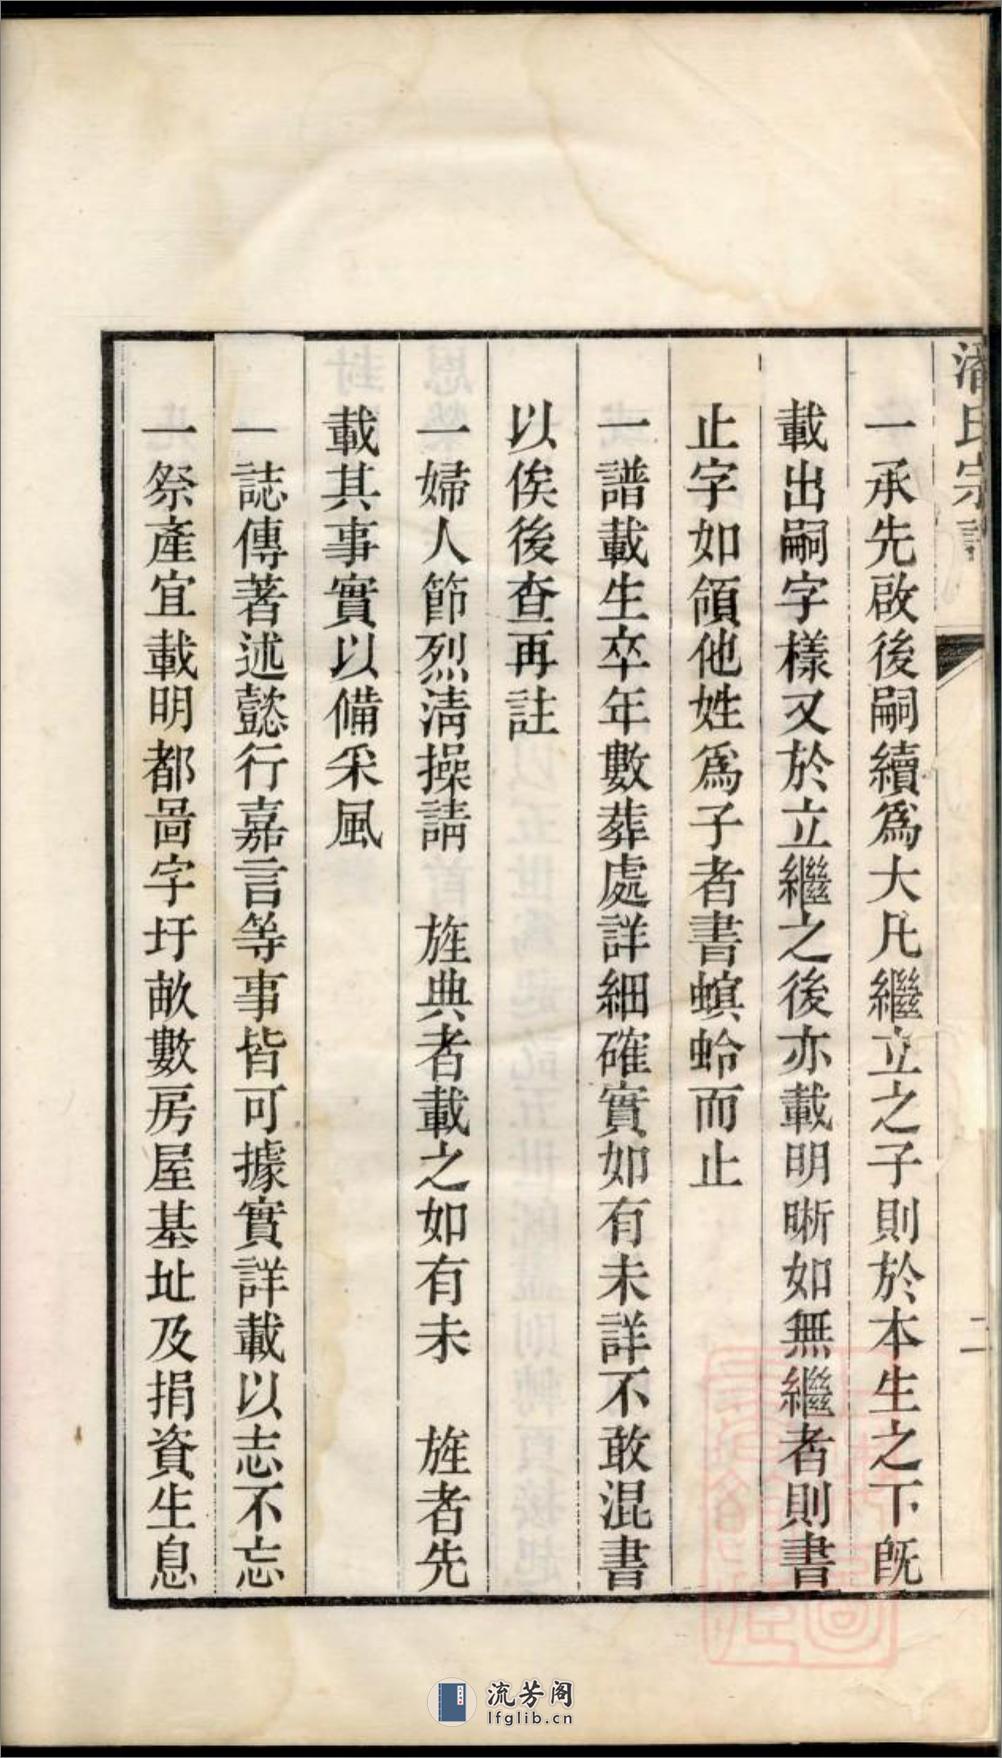 潘氏宗譜
二
一承先啟後嗣續爲大凡繼立之子則於本生之下旣
載出嗣字樣又於立繼之後亦載明晰如無繼者則書
止字如領他姓爲子者書螟蛉而止
一譜載生卒年數葬處詳細確實如有未詳不敢混書
以俟後查再註
一婦人節烈淸操請　旌典者載之如有未　旌者先
載其事實以備采風
一誌傳著述懿行嘉言等事皆可據實詳載以志不忘
一祭產宜載明都啚字圩畝數房屋基址及捐資生息
流芳阁
lfglib.cn